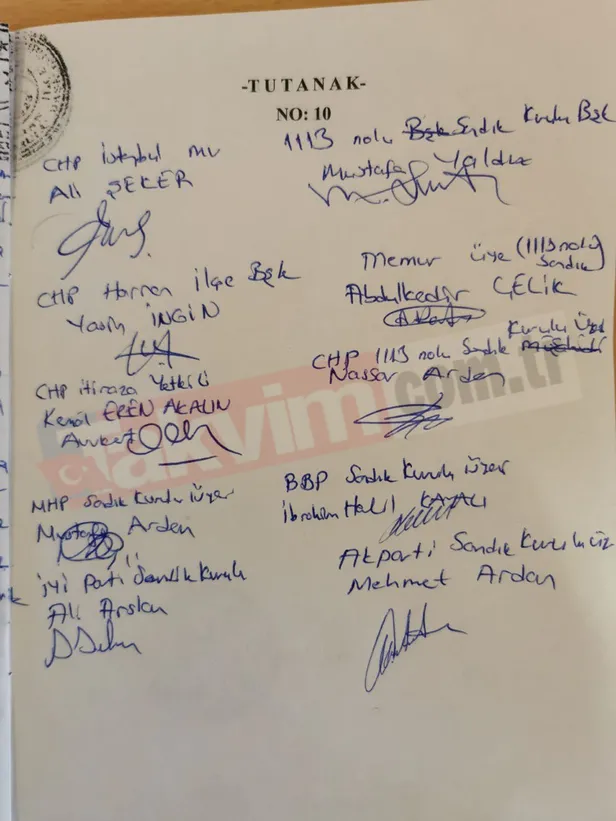 -TUTANAK-
NO: 10
CHP İstanbul mv
Ali ŞEKER
1113 nolu Bşk Sandık Kurulu Bşk
Mustafa Yaldız
CHP Harran ilçe Bşk
Yasin İNGİN
Memur üye (1113 nolu
Sandık
Abdulkadir ÇELİK
CHP itiraza Yetkili
Kemal EREN AKALIN
Avukat
Kurulu Üyesi
CHP 1113 nolu Sandık
Nasser Arden
takvim.com.tr
MHP Sandık Kurulu üyesi
Mustafa Arden
BBP Sandık Kurulu üyesi
İbrahim Halil
iyi Parti Sandık Kurulu
Ali Arslan
Akparti Sandık Kurulu üz
Mehmet Ardan